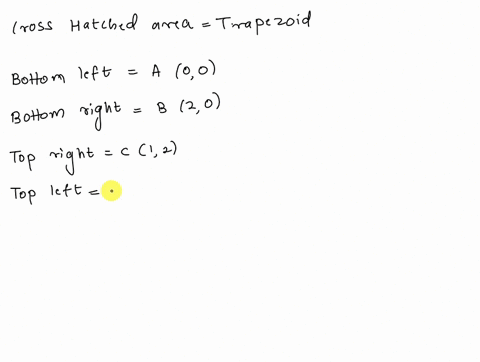 Cross Hatched area = Trapezoid
Bottom left = A (0,0)
Bottom right = B (2,0)
Top right = C (1,2)
Top left =